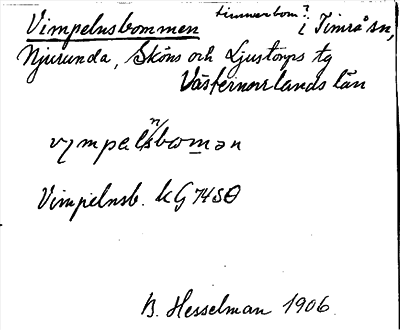 timmerbom?
Vimpelnsbommen i Timrå sn,
Njurunda, Sköns och Ljustorps tg
Västernorrlands län
n
vympelsboman
Vimpelnsb. kG 74SO
B. Hesselman 1906